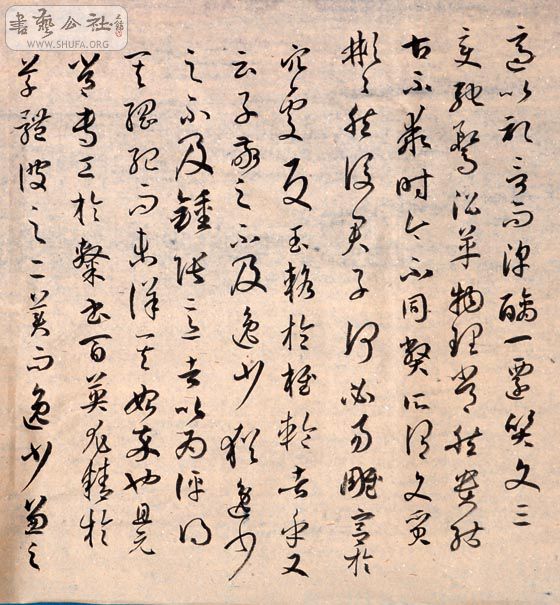 書藝公社
WWW.SHUFA.ORG
適以記言而淳醨一遷質文三
變馳騖沿革物理常然貴能
古不乖時今不同弊所謂文質
彬々然後君子何必易雕宮於
穴處反玉輅於椎輪者乎又
云子敬之不及逸少猶逸少
之不及鍾張意者以為評得
其綱紀而未詳其始卒也且元
常專工於隸書百英尤精於
草體彼之二美而逸少兼之